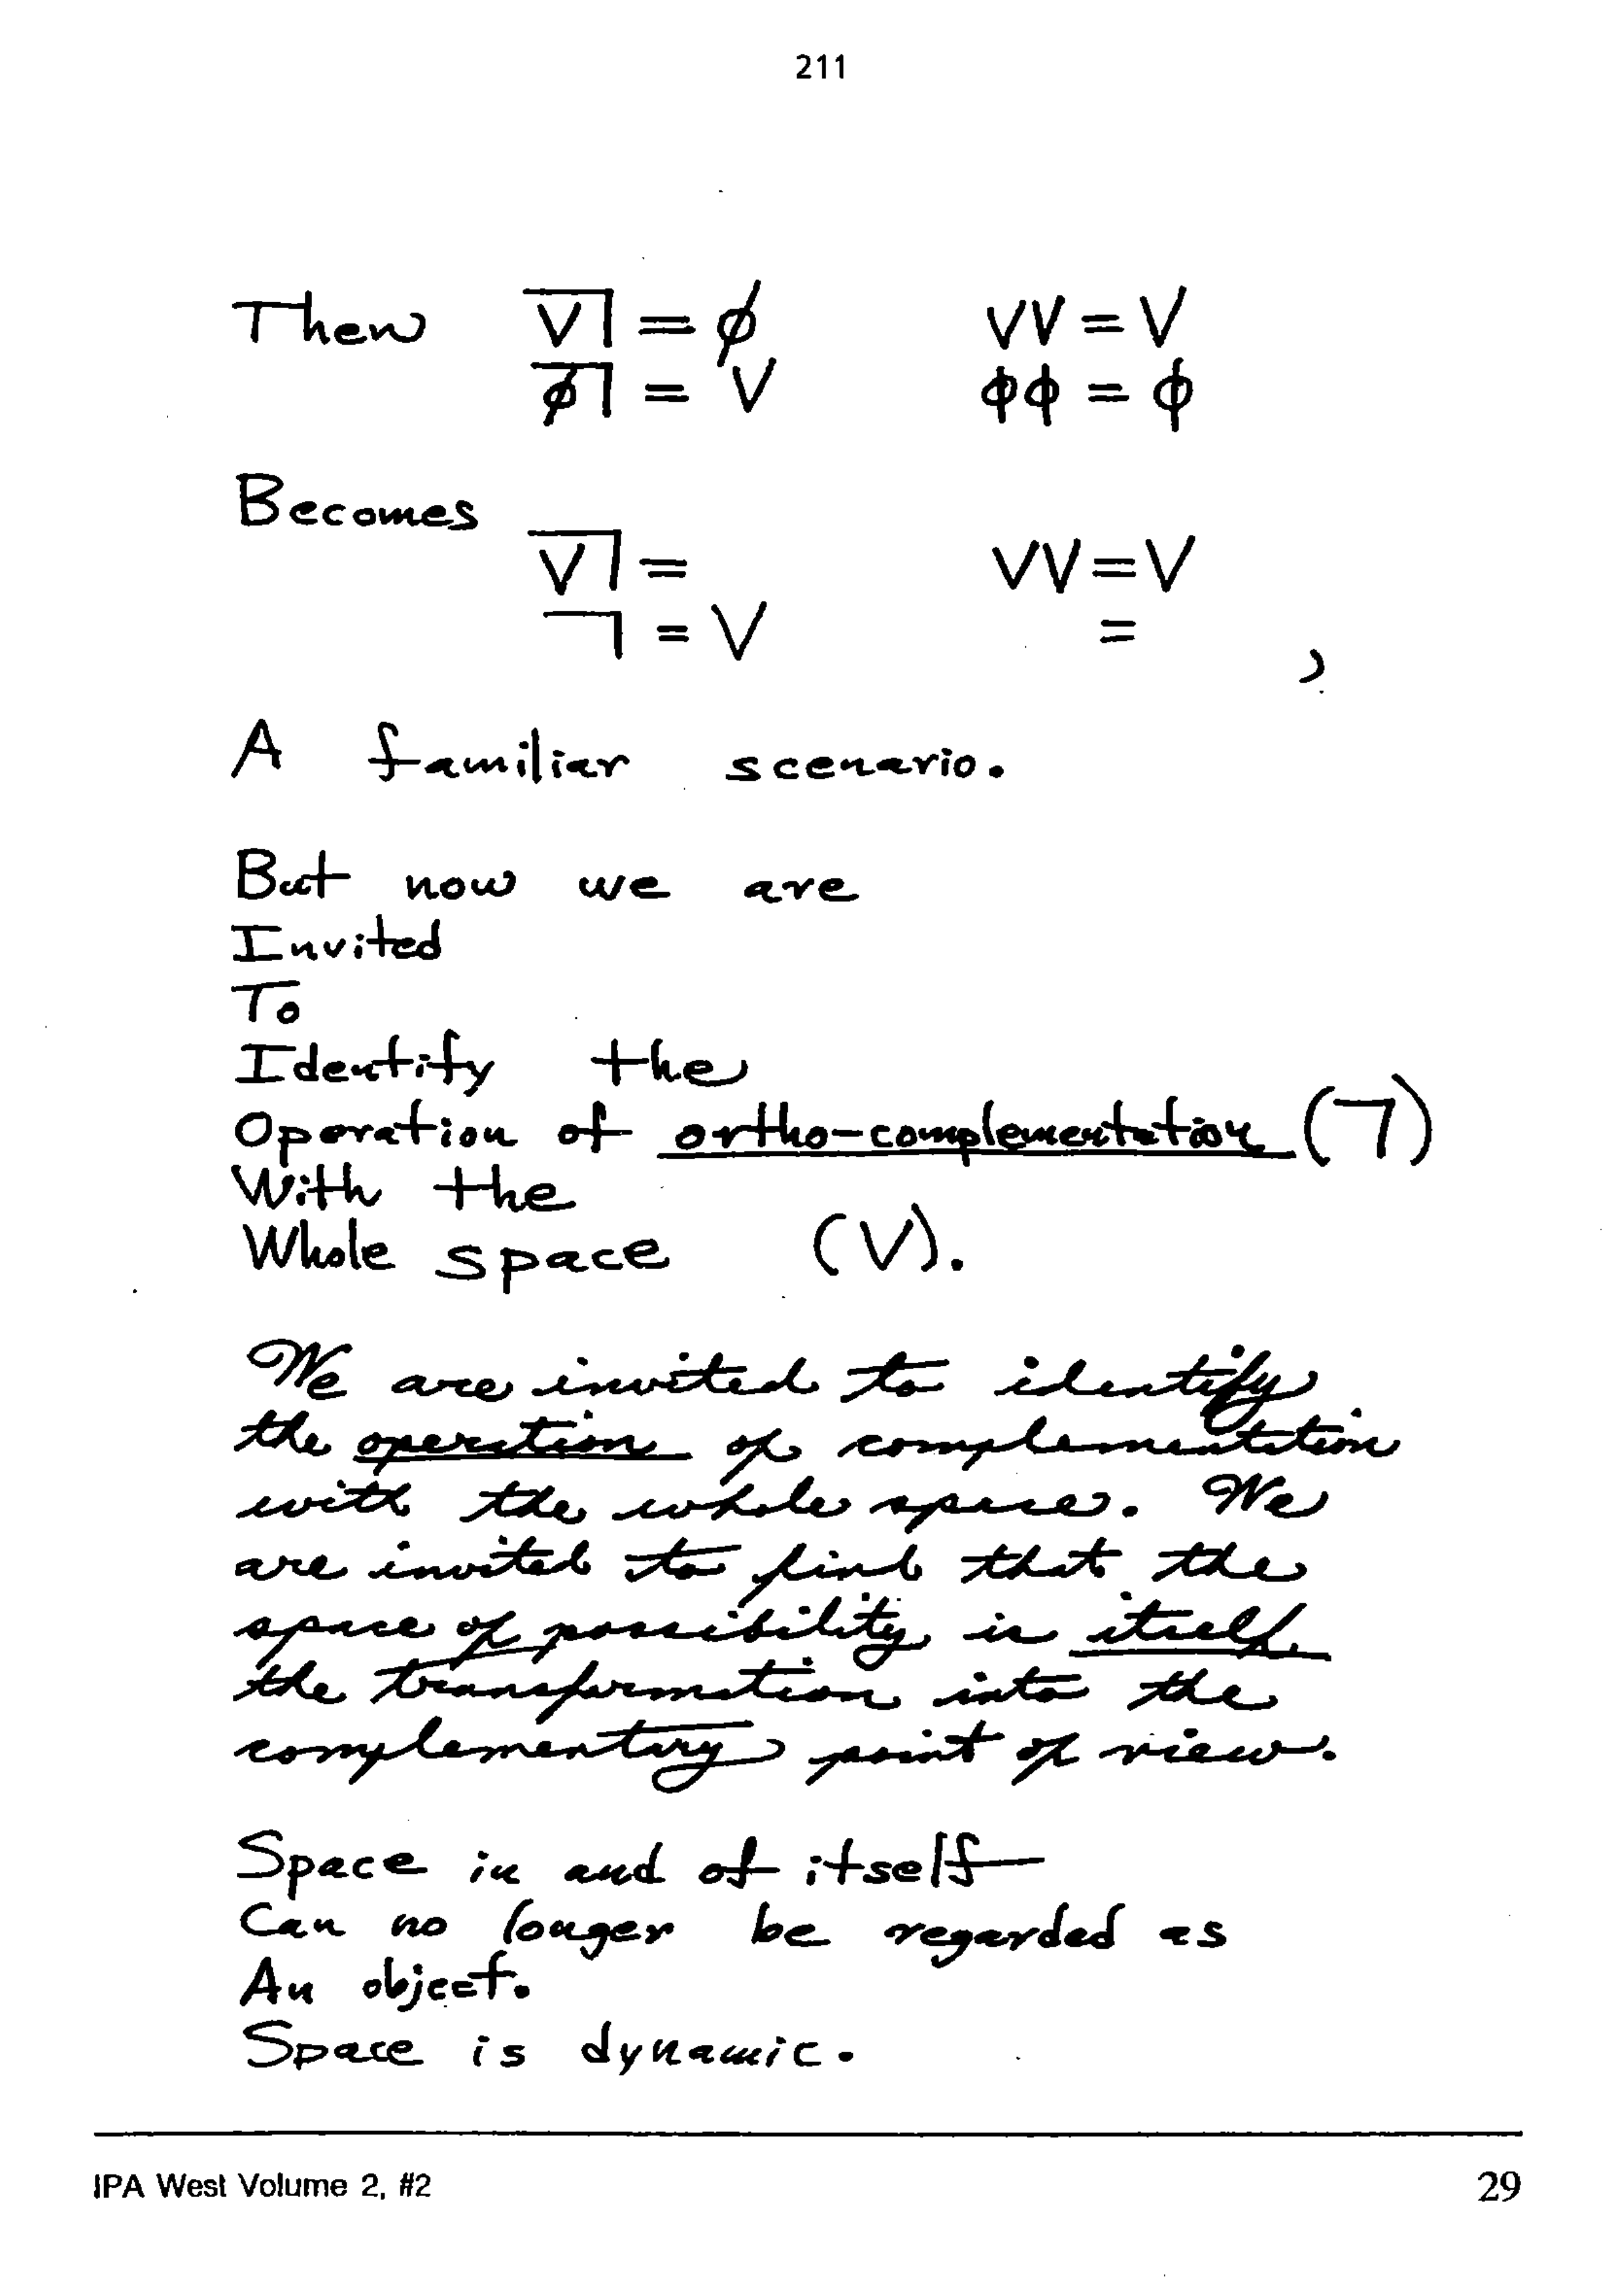 211
Then V̅| = ϕ VV = V
ϕ̅| = V ϕϕ = ϕ
Becomes
V̅| = VV = V
¬ = V = ,
A familiar scenario.
But now we are
Invited
To
Identify the
Operation of ortho-complementation (¬)
With the
Whole space (V).
We are invited to identify
the operation of complementation
with the whole space. We
are invited to find that the
space of possibility is itself
the transformation into the
complementary point of view.
Space in and of itself
Can no longer be regarded as
An object.
Space is dynamic.
IPA West Volume 2, #2 29